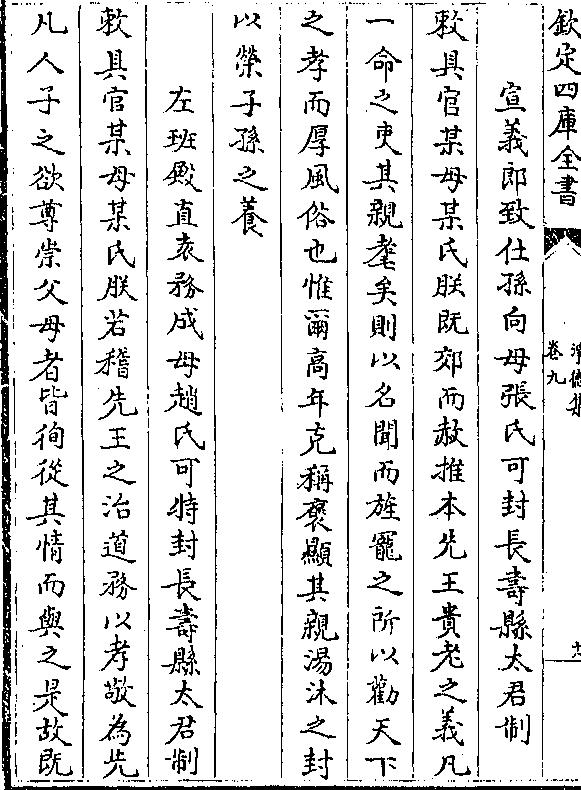 欽定四庫全書
淨德集
卷九
宣義郎致仕孫向母張氏可封長壽縣太君制
敕具官某母某氏朕既郊而赦推本先王貴老之義凡
一命之吏其親耄矣則以名聞而旌寵之所以勸天下
之孝而厚風俗也惟爾高年克稱褒顯其親湯沐之封
以榮子孫之養
左班殿直袁務成母趙氏可特封長壽縣太君制
敕具官某母某氏朕若稽先王之治道務以孝敬為先
凡人子之欲尊崇父母者皆徇從其情而與之是故既